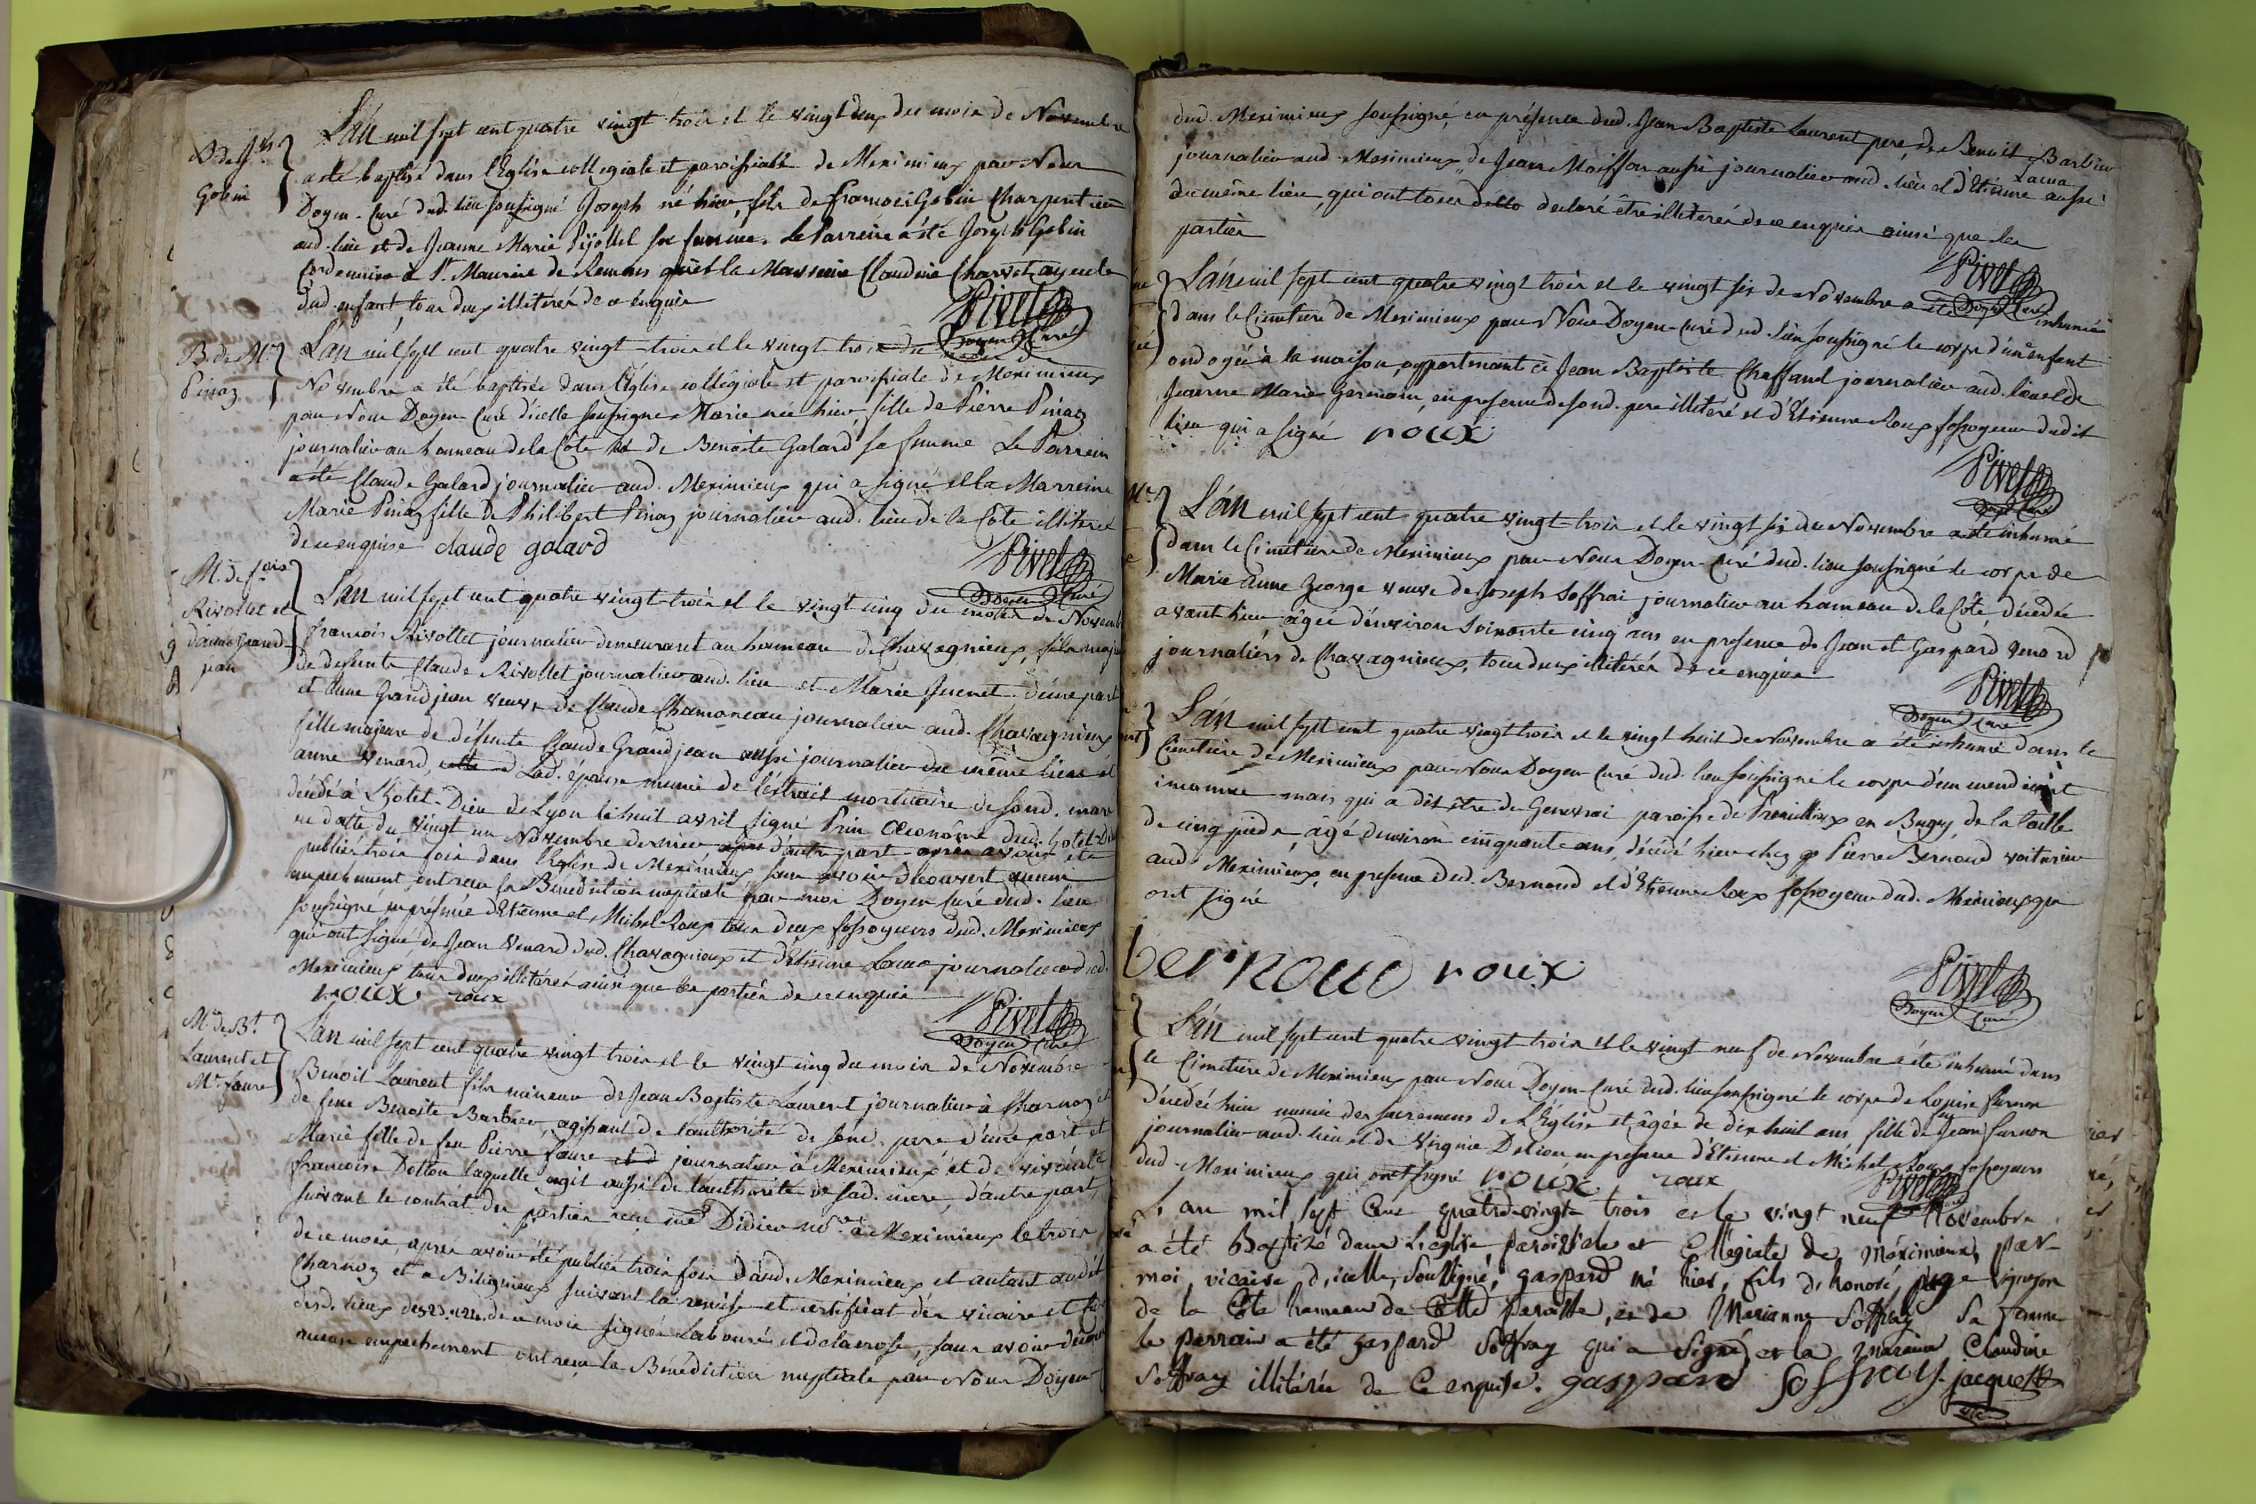 B. de Jph
Gobin
L'an mil sept cent quatre vingt trois et le vingt deux du mois de Novembre
a été baptisé dans l'Eglise collegiale et paroissiale de Meximieux par Nous
Doyen-Curé dud. lieu soussigné Joseph né hier, fils de francois Gobin Charpentier
aud. lieu et de Jeanne Marie Pijollet sa femme. Le Parrein a été Joseph Gobin
Cordonnier à St. Maurice de Remens et la Marreine Claudine Charvet ayeule
dud. enfant, tous deux illiterés de ce enquis
Pivet
Doyen Curé
B. de Mie
Pinaz
L'an mil sept cent quatre vingt-trois et le vingt trois du
Novembre a été baptisée dans l'Eglise collégiale et paroissiale de Meximieux
par Nous Doyen Curé d'icelle soussigné Marie née hier, fille de Pierre Pinaz
journalier au hameau de la Côte et de Benoite Galard sa femme Le Parrein
a été Claude Galard journalier aud. Meximieux qui a signé et la Marreine
Marie Pinaz fille de Philibert Pinaz journalier aud. lieu de la Côte illiterée
de ce enquise claude galard
Pivet
Doyen Curé
M. de fois
Rivollet et
d'anne Grand
jean
L'an mil sept cent quatre vingt-trois et le vingt cinq du mois de Novemb
francois Rivollet journalier demeurant au hameau de Chavagnieux, fils maj
de defunts Claude Rivollet journalier aud. lieu et Marie Juenet d'une part
et Anne Grandjean veuve de Claude Chamoneau journalier aud. Chavagnieux
fille majeure de défunts Claude Grandjean aussi journalier du même lieu et
anne Venard, lad. épouse munie de l'extrait mortuaire de sond. mari
décédé à L'hotel-Dieu de Lyon le huit avril signé Prin Œconôme dud. hotel-Di
en datte du vingt un Novembre dernier d'autre part après avoir été
publiés trois fois dans l'Eglise de Meximieux sans avoir découvert aucun
empechement, ont reçu la Bénédiction nuptiale par moi Doyen Curé dud. lieu
soussigné en présence d'Etienne et Michel Roux tous deux fossoyeurs dud. Meximieux
qui ont signé de Jean Venard dud. Chavagnieux et d'Etienne Lacua journalier aud.
Meximieux tous deux illitérés ainsi que les parties de ce enquis
roux roux
Pivet
Doyen Curé
M. de Bt
Laurent et
Mie faure
L'an mil sept cent quatre vingt trois et le vingt cinq du mois de Novembre
Benoit Laurent fils mineur de Jean Baptiste Laurent journalier à Charnoz et
de feue Benoite Barbier, agissant de l'authorité de sond. pere d'une part et
Marie fille de feu Pierre faure journalier à Meximieux et de vivante
francoise Dotton laquelle agit aussi de l'authorité de sad. mere, d'autre part,
suivant le contrat des parties reçu me Didier nre à Meximieux le trois
de ce mois, après avoir été publiés trois fois aud. Meximieux et autant audit
Charnoz et a Bilignieux suivant la remise et certificat des vicaire et
desd. lieux de ce mois signés Labouré et delacrose, sans avoir découv
aucun empechement ont reçu la Bénédiction nuptiale par Nous Doyen
dud. Meximieux soussigné, en présence dud. Jean Baptiste Laurent pere, de Benoit Barbier
journalier aud. Meximieux, de Jean Moisson aussi journalier aud. lieu et d'Etienne Lacua aussi
du même lieu, qui ont tous declaré être illiterés de ce enquis ainsi que les
parties
Pivet
Doyen Curé
L'an mil sept cent quatre vingt trois et le vingt six de Novembre a été inhumé
dans le Cimetiere de Meximieux par Nous Doyen-Curé dud. lieu soussigné le corps d'un enfant
ondoyée à la maison appartenant à Jean Baptiste Chaffard journalier aud. lieu et de
Jeanne Marie Germain, en presence de sond. pere illiteré et d'Etienne Roux fossoyeur dudit
lieu qui a signé roux
Pivet
Doyen Curé
L'an mil sept cent quatre vingt-trois et le vingt six de Novembre a été inhumé
dans le Cimetiere de Meximieux par Nous Doyen-Curé dud. lieu soussigné le corps de
Marie Anne George veuve de Joseph Soffrai journalier au hameau de la Côte, décédée
avant hier âgée d'environ soixante cinq ans en presence de Jean et Gaspard Venard
journaliers de Chavagnieux, tous deux illitérés de ce enquis
Pivet
Doyen Curé
L'an mil sept cent quatre vingt trois et le vingt huit de Novembre a été inhumé dans le
Cimetiere de Meximieux par Nous Doyen Curé dud. lieu soussigné le corps d'un mendiant
inconnu mais qui a dit être de Genevrai paroisse de en Bugey, de la taille
de cinq pieds, âgé d'environ cinquante ans, décédé hier chez Pierre Bernoud voiturier
aud. Meximieux, en presence dud. Bernoud et d'Etienne Roux fossoyeur dud. Meximieux qui
ont signé
bernoud roux
Pivet
Doyen Curé
L'an mil sept cent quatre vingt-trois et le vingt neuf de Novembre a été inhumé dans
le Cimetiere de Meximieux par Nous Doyen Curé dud. lieu soussigné le corps de Louise furnon
décédée hier munie des sacremens de L'Eglise et âgée de dix huit ans, fille de Jean furnon
journalier aud. lieu et de Virginie Delion en presence d'Etienne et Michel Roux fossoyeurs
dud. Meximieux qui ont signé roux roux
Pivet
L'an mil sept Cent quatre-vingt-trois et le vingt neuf Novembre
a été Baptisé dans L'eglise paroissiale et Collegiale de Méximieux, par
moi, vicaire d'icelle, soussigné, gaspard né hier, fils d'honoré page vigneron
de la Côte hameau de Cette paroisse, et de Marianne Soffray sa femme
le parrain a été gaspard Soffray qui a Signé et la maraine Claudine
Soffray illitérée de Ce enquise. gaspard soffray jacquet
vic